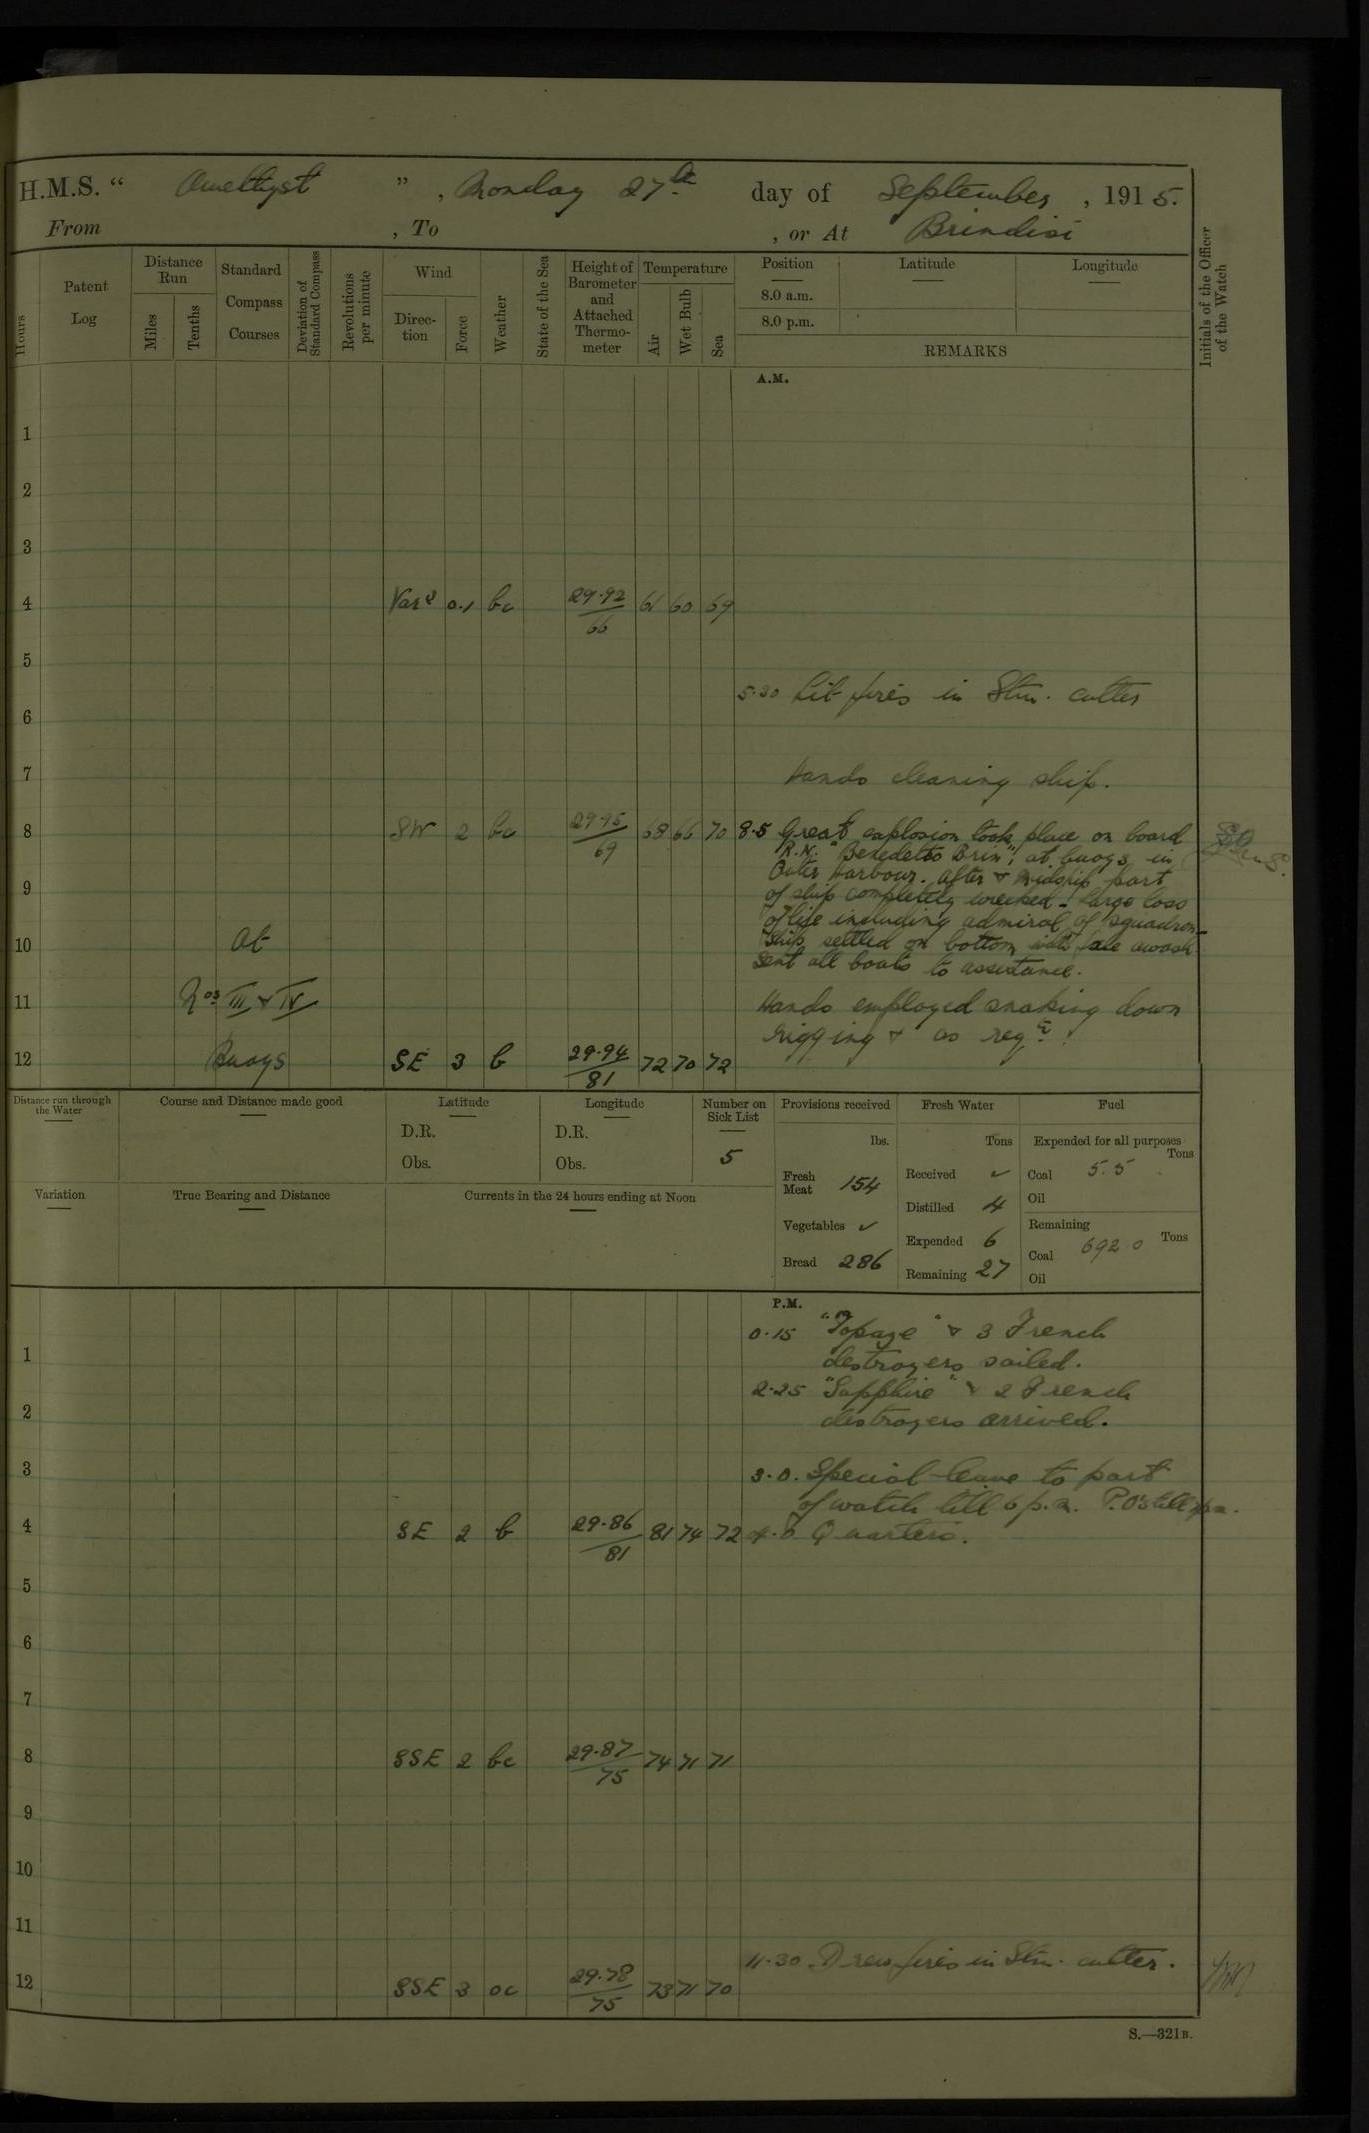 H.M.S. “ Amethyst ” , Monday 27th day of September , 1915.
From , To , or At Brindisi
Hours
Patent Log
Distance Run
Miles
Tenths
Standard Compass Courses
Deviation of Standard Compass
Revolutions per minute
Wind
Direction
Force
Weather
State of the Sea
Height of Barometer and Attached Thermometer
Temperature
Air
Wet Bulb
Sea
Position
Latitude
Longitude
8.0 a.m.
8.0 p.m.
REMARKS
Initials of the Officer of the Watch
A.M.
1
2
3
4 Varˡ 0.1 bc 29.92/66 61 60 69
5
5.30 Lit fires in Stm. cutter
6
7 Hands cleaning ship.
8 SW 2 bc 29.95/69 68 66 70 8.5 Great explosion took place on board
R.N. "Benedetto Brin", at buoys in
Outer Harbour. After & midship part
9 of ship completely wrecked - large loss
of life including admiral of squadron -
10 At Ship settled on bottom with awash
Sent all boats to assistance.
11 Nos III & IV Hands employed snaking down
rigging & as reqd.
12 Buoys SE 3 b 29.94/81 72 70 72
Distance run through the Water
Course and Distance made good
Latitude
D.R.
Obs.
Longitude
D.R.
Obs.
Number on Sick List
5
Provisions received
lbs.
Fresh Meat 154
Vegetables ✓
Bread 286
Fresh Water
Tons
Received ✓
Distilled 4
Expended 6
Remaining 27
Fuel
Expended for all purposes
Tons
Coal 5.5
Oil
Remaining
Tons
Coal 692 0
Oil
Variation
True Bearing and Distance
Currents in the 24 hours ending at Noon
P.M.
0.15 "Topaze" & 3 French
1 destroyers sailed.
2.25 "Sapphire" & 2 French
2 destroyers arrived.
3 3.0. Special leave to part
of watch till 6 p.m. P.O's till
4 SE 2 b 29.86/81 81 74 72 4.0 Quarters.
5
6
7
8 SSE 2 bc 29.87/75 74 71 71
9
10
11
11.30 Drew fires in Stm. cutter.
12 SSE 3 oc 29.78/75 73 71 70
S.—321B.